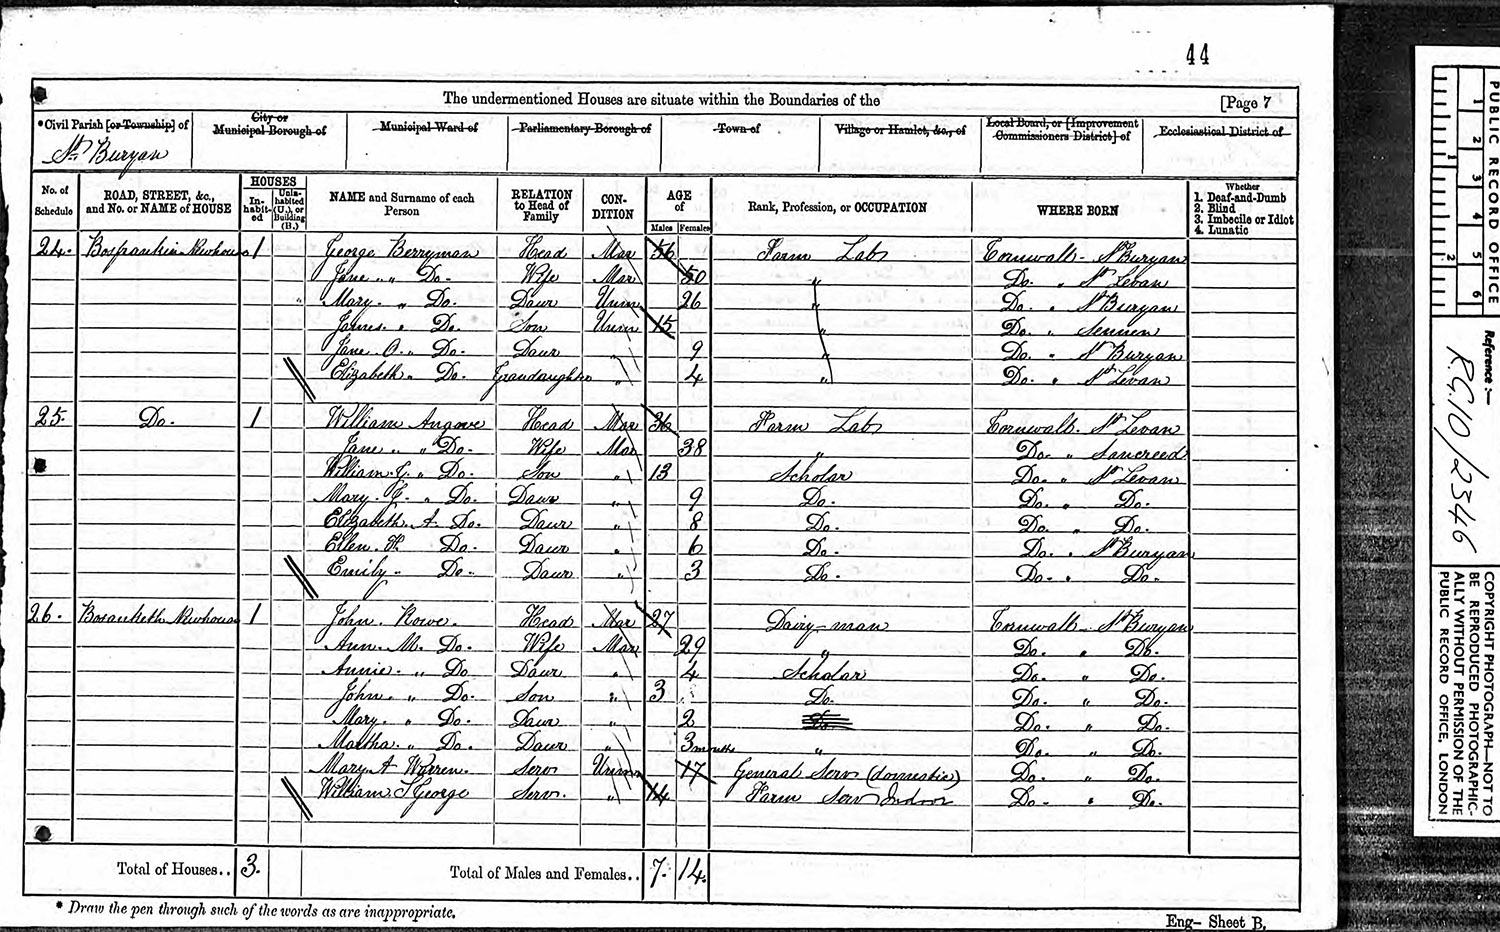 44
The undermentioned Houses are situate within the Boundaries of the [Page 7
*Civil Parish [or Township] of City or Municipal Borough of Municipal Ward of Parliamentary Borough of Town of Village or Hamlet, &c., of Local Board, or [Improvement Commissioners District] of Ecclesiastical District of
St. Buryan
No. of Schedule ROAD, STREET, &c., and No. or NAME of HOUSE HOUSES Inhabited Uninhabited (U.), or Building (B.) NAME and Surname of each Person RELATION to Head of Family CONDITION AGE of Males Females Rank, Profession, or OCCUPATION WHERE BORN Whether 1. Deaf-and-Dumb 2. Blind 3. Imbecile or Idiot 4. Lunatic
24. Newhouse 1 George Berryman Head Mar 56 Farm Lab Cornwall - St Buryan
Jane " Do. Wife Mar 50 " Do. " St Levan
Mary " Do. Daur Unm 26 " Do. " St Buryan
James " Do. Son Unm 15 " Do. " Sennen
Jane A. " Do. Daur " 9 " Do. " St Buryan
Elizabeth " Do. Grandaughter " 4 " Do. " St Levan
25. Do. 1 William Angove Head Mar 36 Farm Lab Cornwall - St Levan
Jane " " Do. Wife Mar 38 " Do. " Sancreed
William J. " Do. Son " 13 Scholar Do. " St Levan
Mary J. " Do. Daur " 9 Do. Do. " Do.
Elizabeth A. Do. Daur " 8 Do. Do. " Do.
Ellen H. Do. Daur " 6 Do. Do. " St Buryan
Emily " Do. Daur " 3 Do. Do. " Do.
26. Newhouse 1 John Rowe Head Mar 27 Dairy-man Cornwall - St Buryan
Ann M. Do. Wife Mar 29 " Do. " Do.
Annie " Do Daur " 4 Scholar Do. " Do.
John " Do. Son " 3 Do. Do. " Do.
Mary " Do. Daur " 2 Do. Do. " Do.
Martha " Do. Daur " 3 months " Do. " Do.
Mary A Warren Serv Unm 17 General Serv (domestic) Do. " Do.
William T George Serv. " 14 Farm Serv Indoor Do. " Do.
Total of Houses.. 3. Total of Males and Females.. 7. 14.
* Draw the pen through such of the words as are inappropriate.
Eng- Sheet B.
PUBLIC RECORD OFFICE
1 2 3 4 5 6
1 2
Reference :-
R.G.10/2346
COPYRIGHT PHOTOGRAPH—NOT TO
BE REPRODUCED PHOTOGRAPHIC-
ALLY WITHOUT PERMISSION OF THE
PUBLIC RECORD OFFICE, LONDON